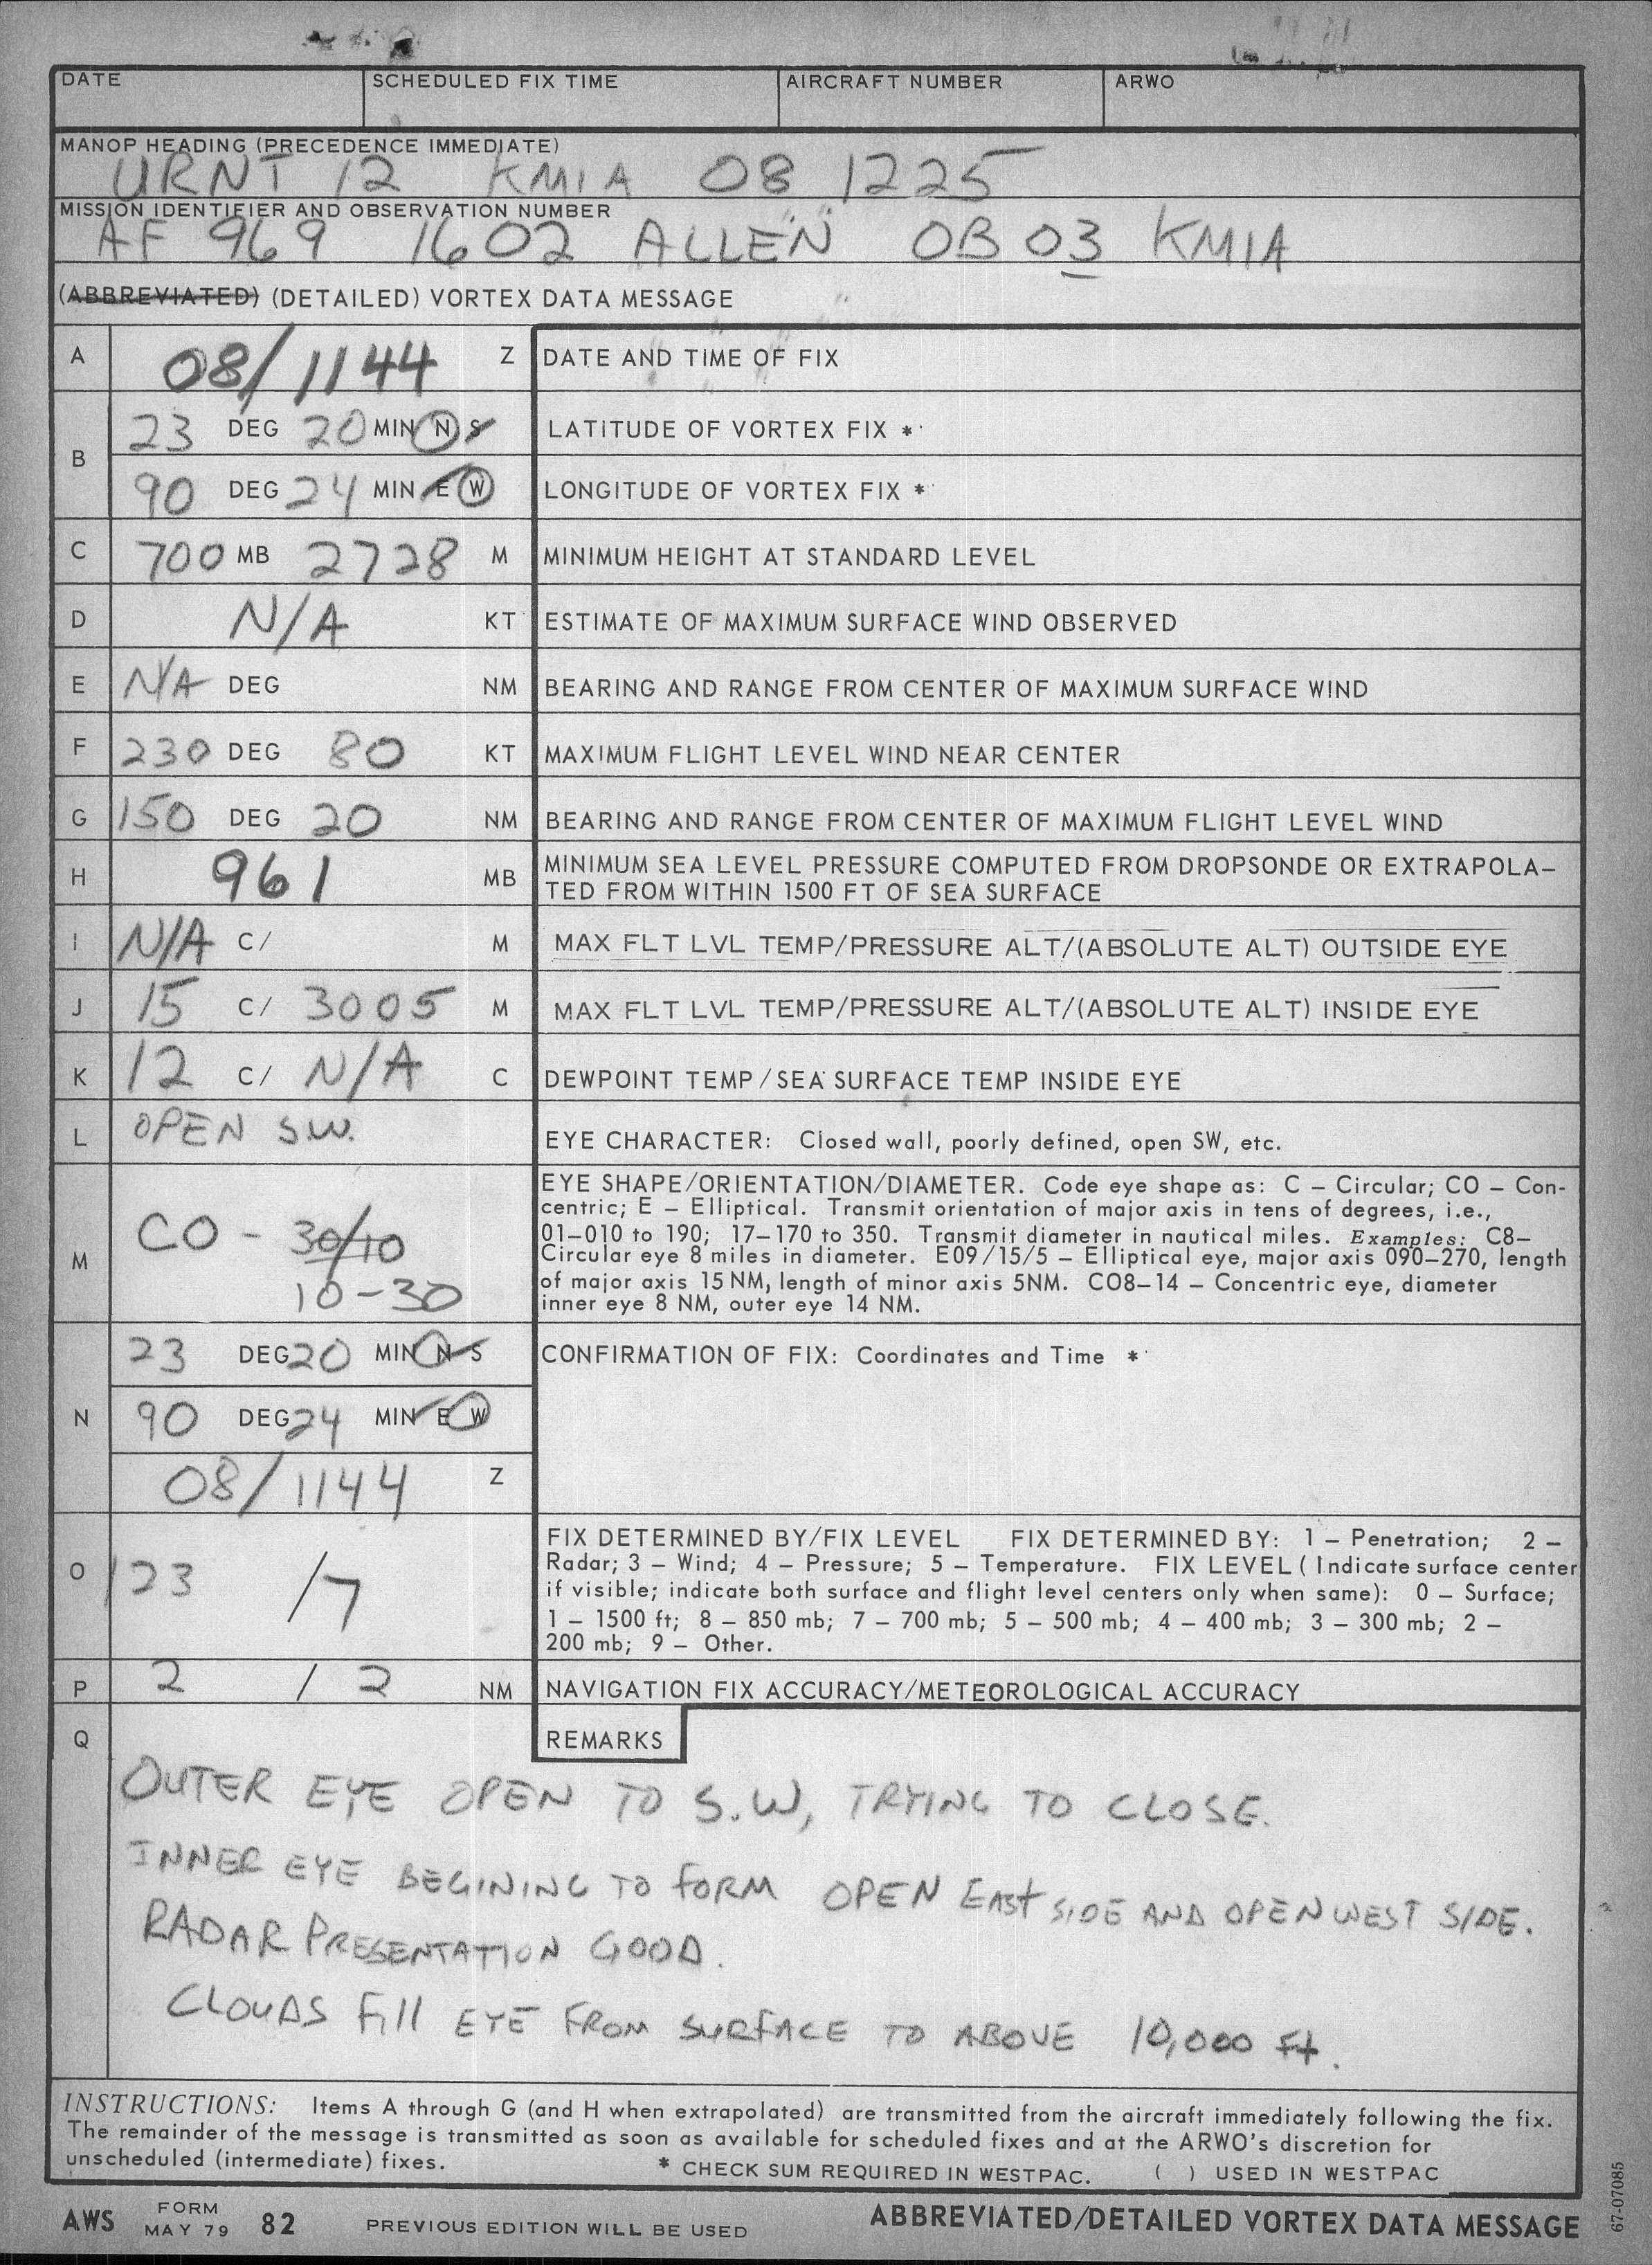 DATE SCHEDULED FIX TIME AIRCRAFT NUMBER ARWO
MANOP HEADING (PRECEDENCE IMMEDIATE)
URNT 12 KMIA 08 1225
MISSION IDENTIFIER AND OBSERVATION NUMBER
AF 969 1602 ALLEN OB 03 KMIA
(ABBREVIATED) (DETAILED) VORTEX DATA MESSAGE
A 08/1144 Z DATE AND TIME OF FIX
B 23 DEG 20 MIN N S LATITUDE OF VORTEX FIX *
90 DEG 24 MIN E W LONGITUDE OF VORTEX FIX *
C 700 MB 2728 M MINIMUM HEIGHT AT STANDARD LEVEL
D N/A KT ESTIMATE OF MAXIMUM SURFACE WIND OBSERVED
E N/A DEG NM BEARING AND RANGE FROM CENTER OF MAXIMUM SURFACE WIND
F 230 DEG 80 KT MAXIMUM FLIGHT LEVEL WIND NEAR CENTER
G 150 DEG 20 NM BEARING AND RANGE FROM CENTER OF MAXIMUM FLIGHT LEVEL WIND
H 961 MB MINIMUM SEA LEVEL PRESSURE COMPUTED FROM DROPSONDE OR EXTRAPOLA-
TED FROM WITHIN 1500 FT OF SEA SURFACE
I N/A C/ M MAX FLT LVL TEMP/PRESSURE ALT/(ABSOLUTE ALT) OUTSIDE EYE
J 15 C/ 3005 M MAX FLT LVL TEMP/PRESSURE ALT/(ABSOLUTE ALT) INSIDE EYE
K 12 C/ N/A C DEWPOINT TEMP/SEA SURFACE TEMP INSIDE EYE
L OPEN S.W. EYE CHARACTER: Closed wall, poorly defined, open SW, etc.
M CO - 30/10
10-30
EYE SHAPE/ORIENTATION/DIAMETER. Code eye shape as: C – Circular; CO – Con-
centric; E – Elliptical. Transmit orientation of major axis in tens of degrees, i.e.,
01–010 to 190; 17–170 to 350. Transmit diameter in nautical miles. Examples: C8–
Circular eye 8 miles in diameter. E09/15/5 – Elliptical eye, major axis 090–270, length
of major axis 15 NM, length of minor axis 5NM. CO8–14 – Concentric eye, diameter
inner eye 8 NM, outer eye 14 NM.
N 23 DEG 20 MIN N S CONFIRMATION OF FIX: Coordinates and Time *
90 DEG 24 MIN E W
08/1144 Z
O 123 /7
FIX DETERMINED BY/FIX LEVEL FIX DETERMINED BY: 1 – Penetration; 2 –
Radar; 3 – Wind; 4 – Pressure; 5 – Temperature. FIX LEVEL (Indicate surface center
if visible; indicate both surface and flight level centers only when same): 0 – Surface;
1 – 1500 ft; 8 – 850 mb; 7 – 700 mb; 5 – 500 mb; 4 – 400 mb; 3 – 300 mb; 2 –
200 mb; 9 – Other.
P 2 / 2 NM NAVIGATION FIX ACCURACY/METEOROLOGICAL ACCURACY
Q REMARKS
OUTER EYE OPEN TO S.W, TRYING TO CLOSE.
INNER EYE BEGINING TO FORM OPEN EAST SIDE AND OPEN WEST SIDE.
RADAR PRESENTATION GOOD.
CLOUDS Fill EYE FROM SURFACE TO ABOVE 10,000 Ft.
INSTRUCTIONS: Items A through G (and H when extrapolated) are transmitted from the aircraft immediately following the fix.
The remainder of the message is transmitted as soon as available for scheduled fixes and at the ARWO's discretion for
unscheduled (intermediate) fixes. * CHECK SUM REQUIRED IN WESTPAC. ( ) USED IN WESTPAC
AWS FORM MAY 79 82 PREVIOUS EDITION WILL BE USED ABBREVIATED/DETAILED VORTEX DATA MESSAGE
67-07085